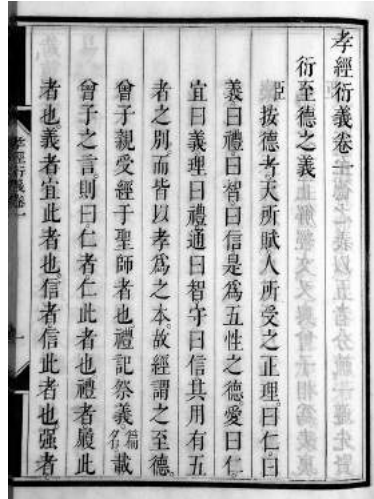 孝經衍義卷一
衍至德之義
臣按德者天所賦人所受之正理曰仁曰
義曰禮曰智曰信是爲五性之德愛曰仁
宜曰義理曰禮通曰智守曰信其用有五
者之別而皆以孝爲之本故經謂之至德
曾子親受經于聖師者也禮記祭義篇名載
曾子之言則曰仁者仁此者也禮者履此
者也義者宜此者也信者信此者也强者
孝經衍義卷一